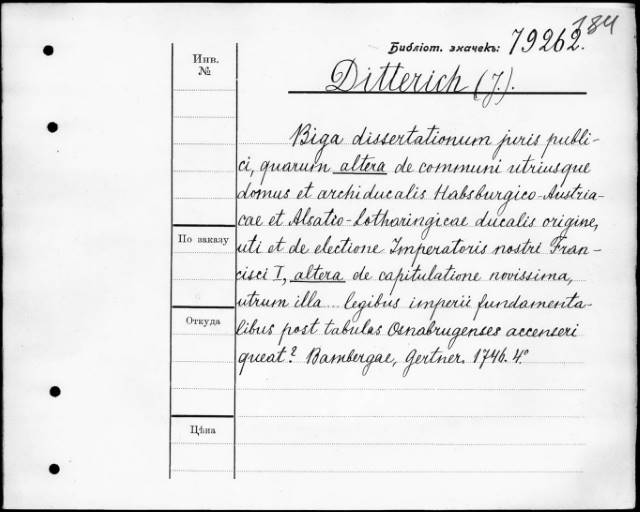 184
Библіот. значекъ: 79262.
Инв.
№
Ditterich (J.).
Biga dissertationum juris publi-
ci, quarum altera de communi utriusque
domus et archiducalis Habsburgico-Austria-
cae et Alsatio-Lotharingicae ducalis origine,
uti et de electione Imperatoris nostri Fran-
cisci I, altera de capitulatione novissima,
utrum illa ... legibus imperii fundamenta-
libus post tabulas Osnabrugenses accenseri
queat? Bambergae, Gertner. 1746. 4°
По заказу
Откуда
Цѣна